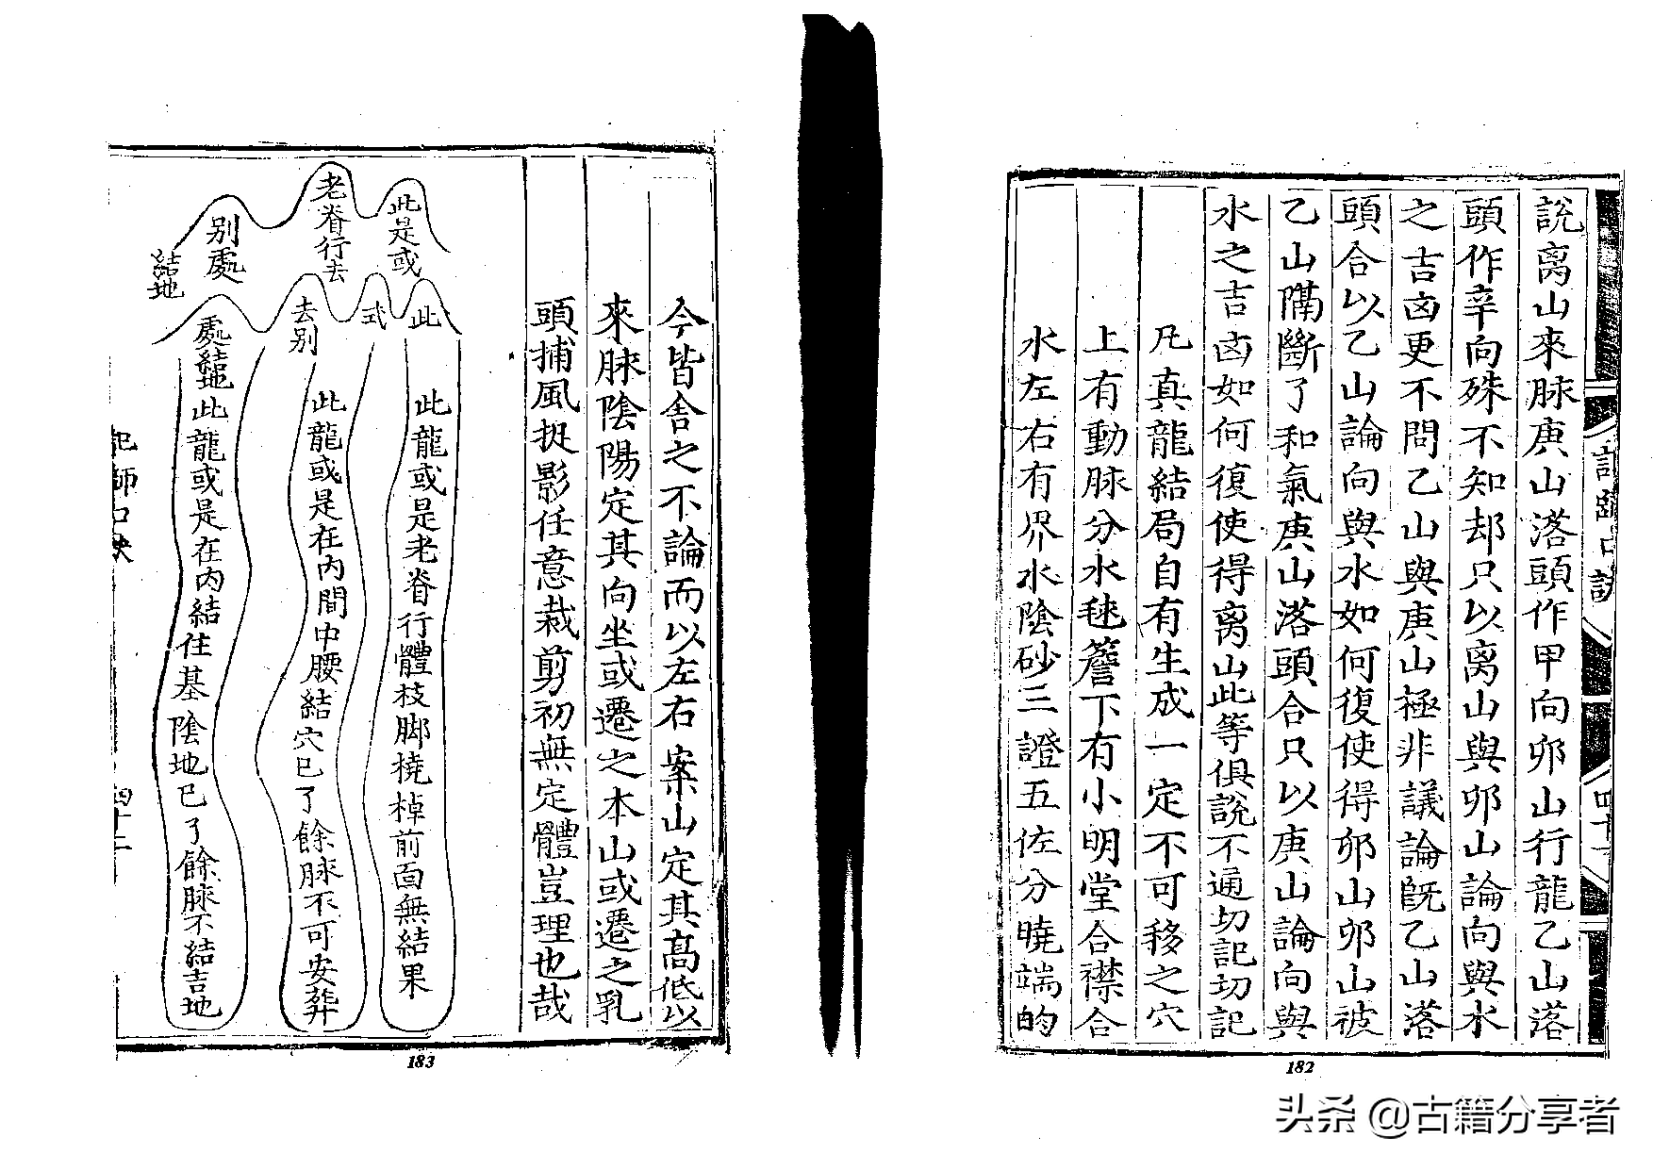 說离山來脉庚山落頭作甲向卯山行龍乙山落
頭作辛向殊不知却只以离山與卯山論向與水
之吉凶更不問乙山與庚山極非議論旣乙山落
頭合以乙山論向與水如何復使得卯山卯山被
乙山隔斷了和氣庚山落頭合只以庚山論向與
水之吉凶如何復使得离山此等俱說不通切記切記
凡真龍結局自有生成一定不可移之穴
上有動脉分水毬簷下有小明堂合襟合
水左右有界水陰砂三證五佐分曉端的
四十一
182
今皆舍之不論而以左右案山定其高低以
來脉陰陽定其向坐或遷之本山或遷之乳
頭捕風捉影任意栽剪初無定體豈理也哉
此是或
老脊行去
別處
結地
此
式
去別
處結地
此龍或是老脊行體枝脚橈棹前面無結果
此龍或是在內間中腰結穴已了餘脉不可安葬
此龍或是在內結住基陰地已了餘脉不結吉地
師口
四十二
183
头条 @古籍分享者